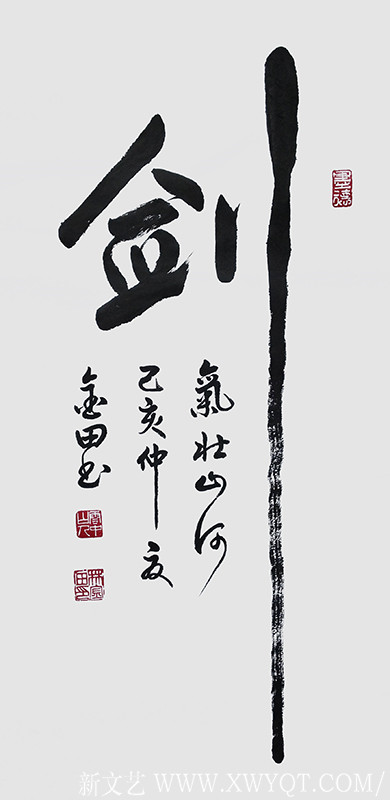 剑
氣壮山河
己亥仲夏
金田书
新文艺 WWW.XWYQT.COM/